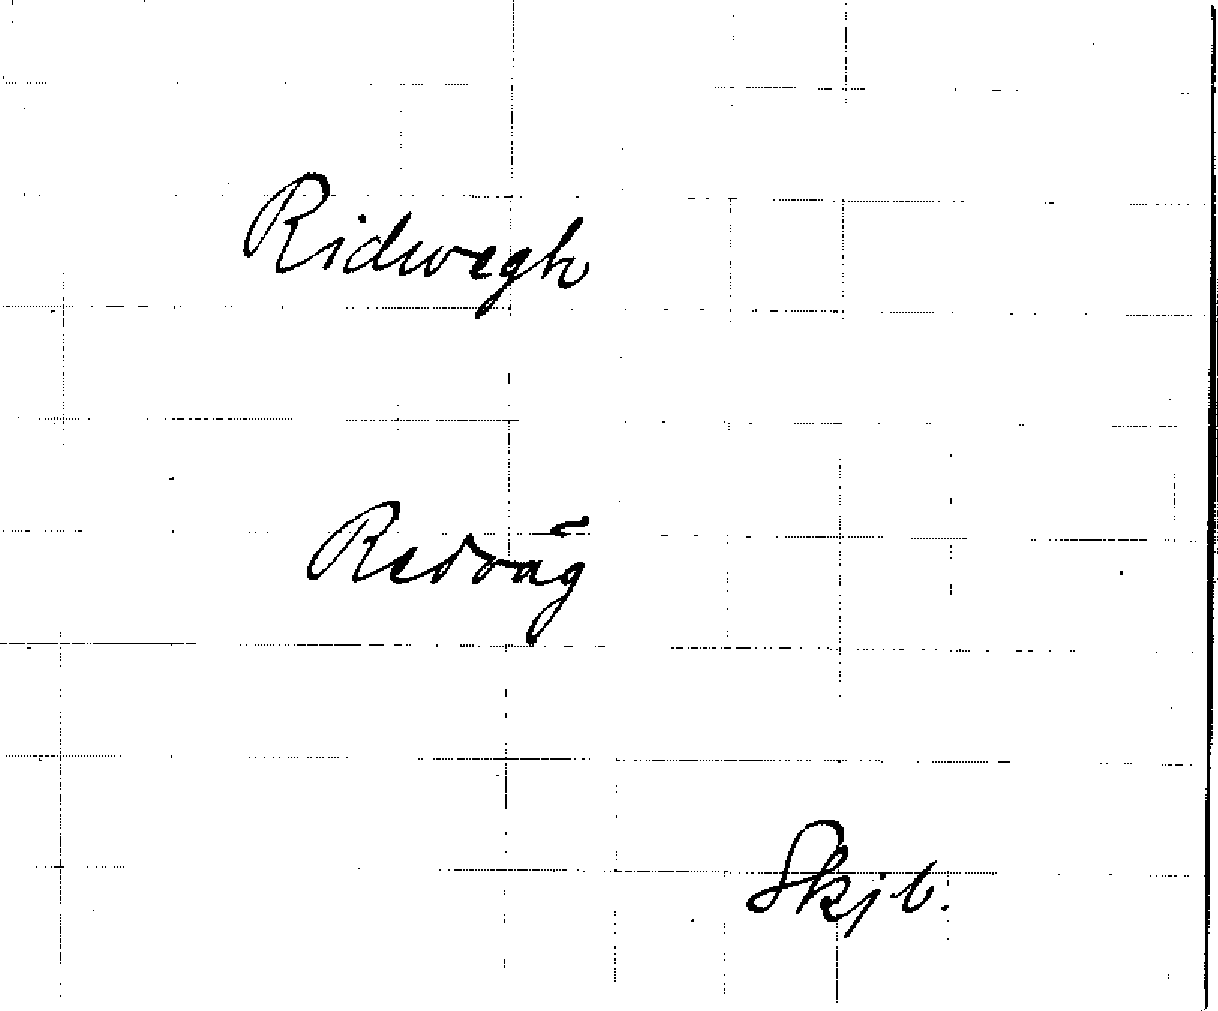 Ridwegh
Redvåg
Skjb.